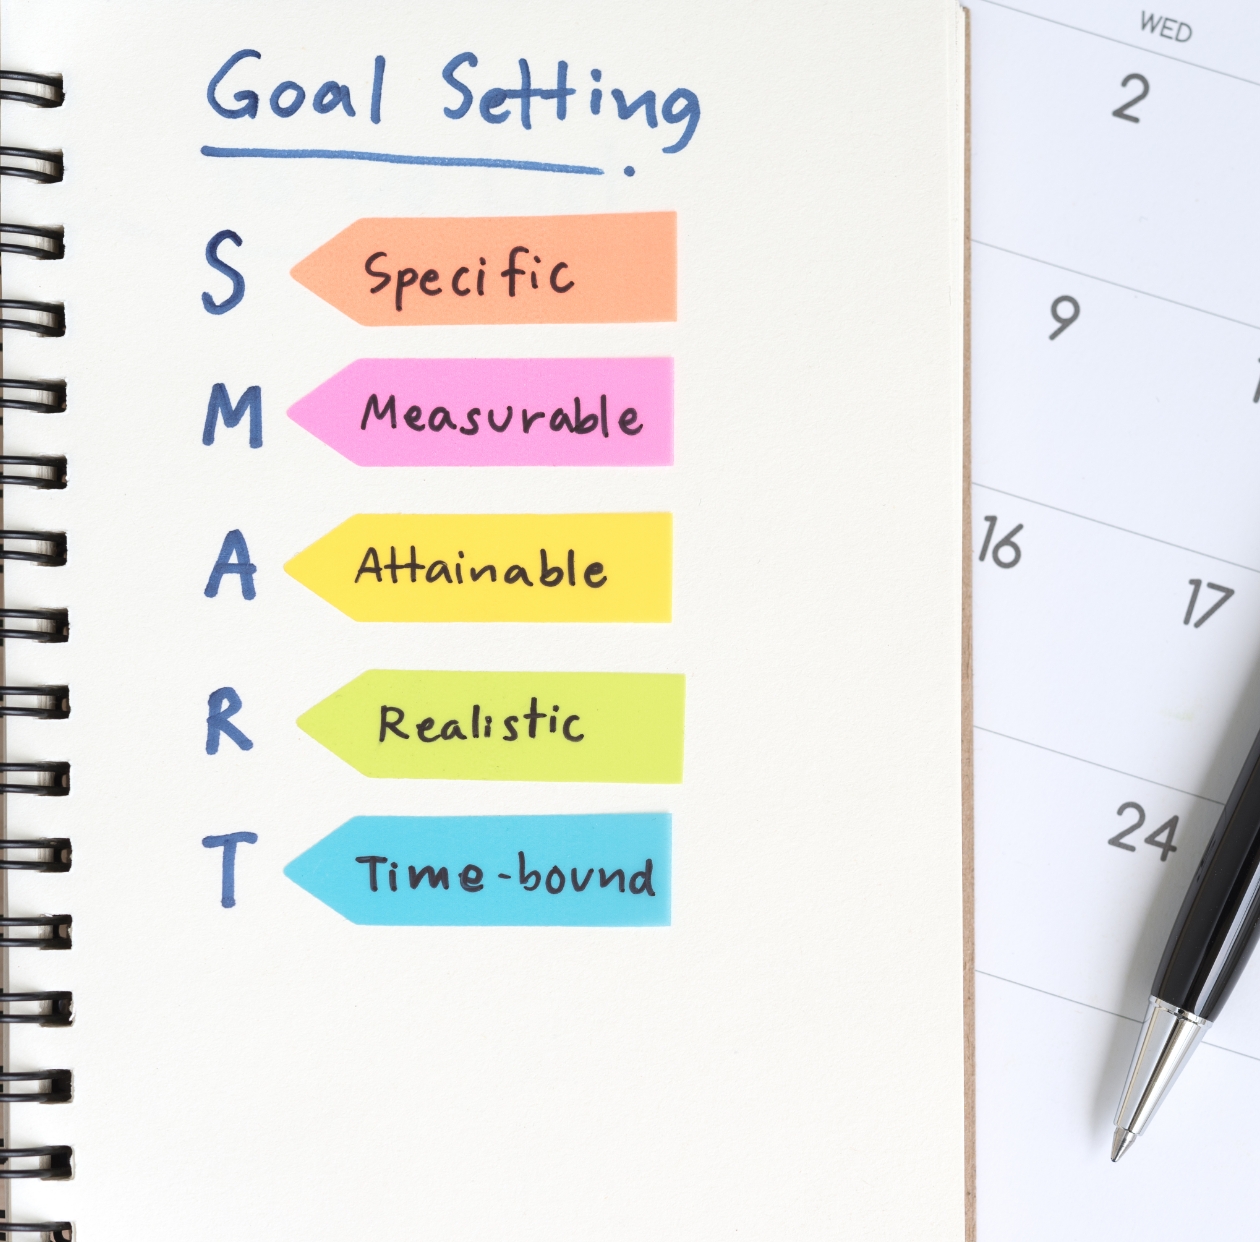 Goal Setting
S Specific
M Measurable
A Attainable
R Realistic
T Time-bound
WED
2
9
16
17
24